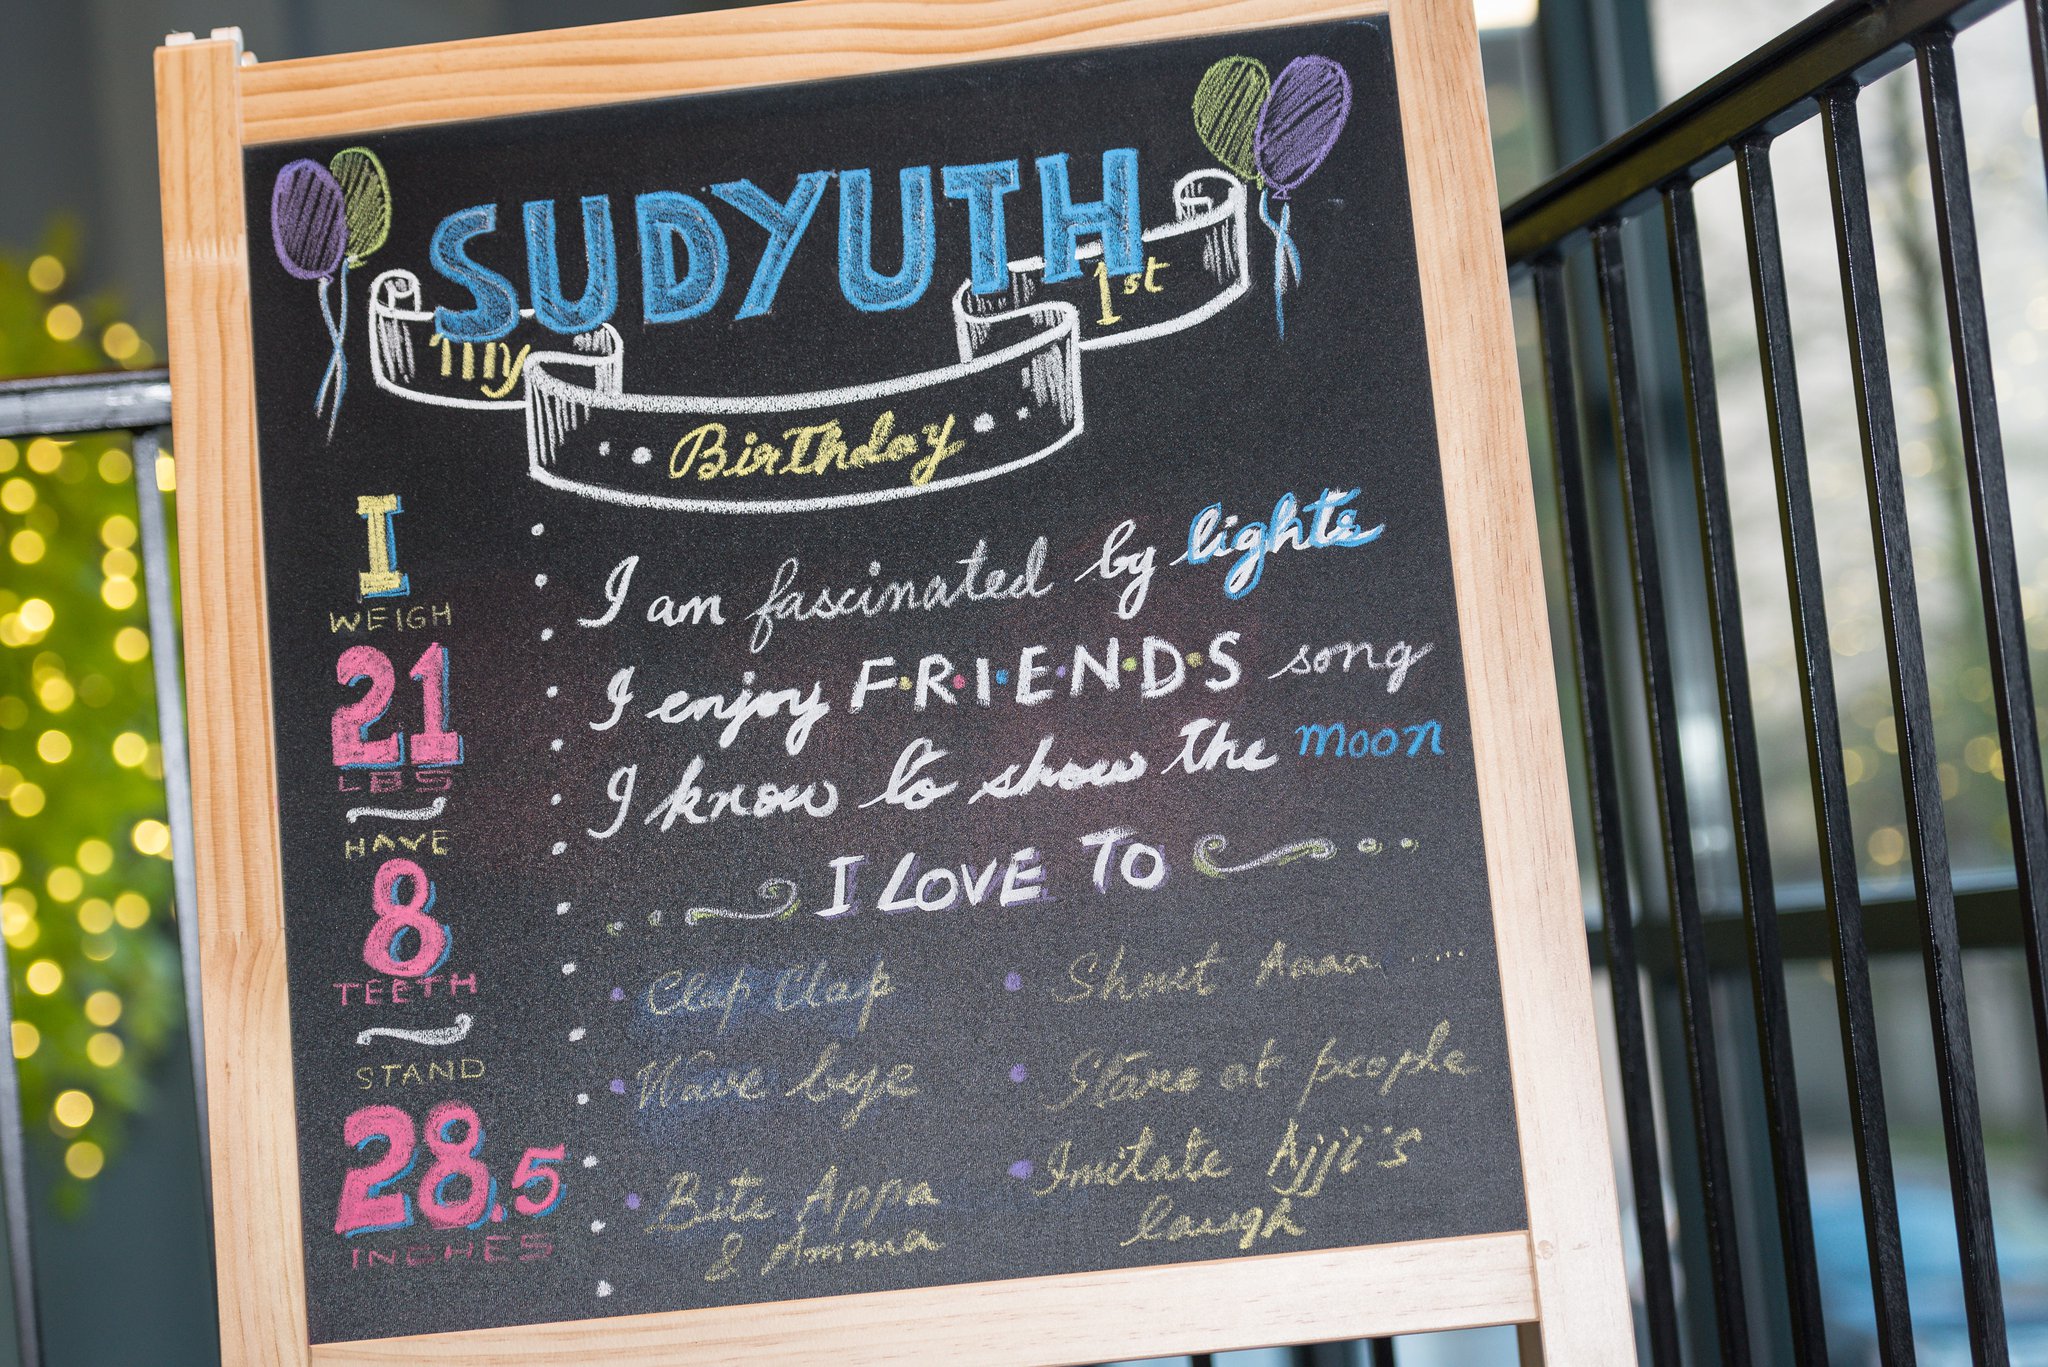 SUDYUTH
My 1st
Birthday
I
WEIGH
21
LBS
HAVE
8
TEETH
STAND
28.5
INCHES
I am fascinated by lights
I enjoy F·R·I·E·N·D·S song
I know to show the moon
I LOVE TO
• Clap Clap
• Wave bye
• Bite Appa
& Amma
• Shout Aaaa .....
• Stare at people
• Imitate Ajji's
laugh